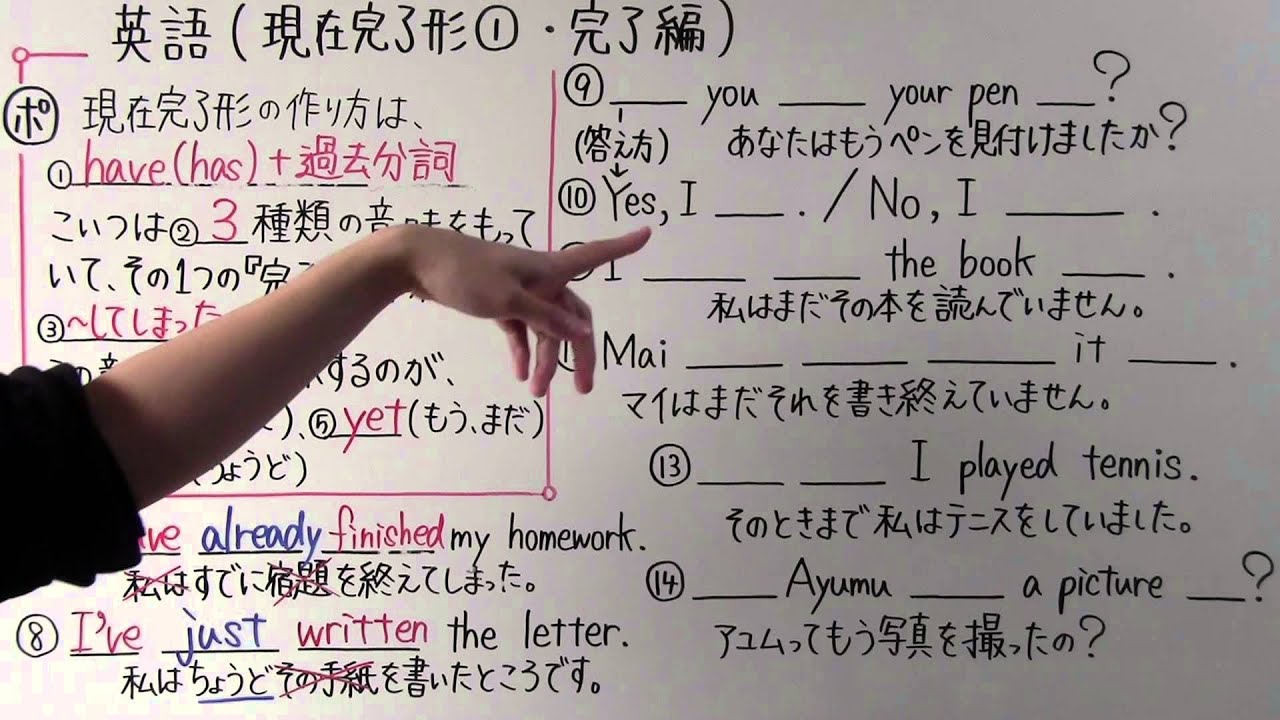 英語(現在完了形①・完了編)
ポ 現在完了形の作り方は、
① have(has)+過去分詞
こいつは② 3 種類の意味をもって
いて、その1つの『完
③ ~してしまった
するのが、
)、⑤ yet (もう、まだ)
ちょうど)
already finished my homework.
私はすでに宿題を終えてしまった。
⑧ I've just written the letter.
私はちょうどその手紙を書いたところです。
⑨ ____ you ____ your pen ____?
(答え方) あなたはもうペンを見付けましたか?
⑩ Yes, I ____. / No, I ____.
I ____ ____ the book ____.
私はまだその本を読んでいません。
Mai ____ ____ ____ it ____.
マイはまだそれを書き終えていません。
⑬ ____ ____ I played tennis.
そのときまで私はテニスをしていました。
⑭ ____ Ayumu ____ a picture ____?
アユムってもう写真を撮ったの?